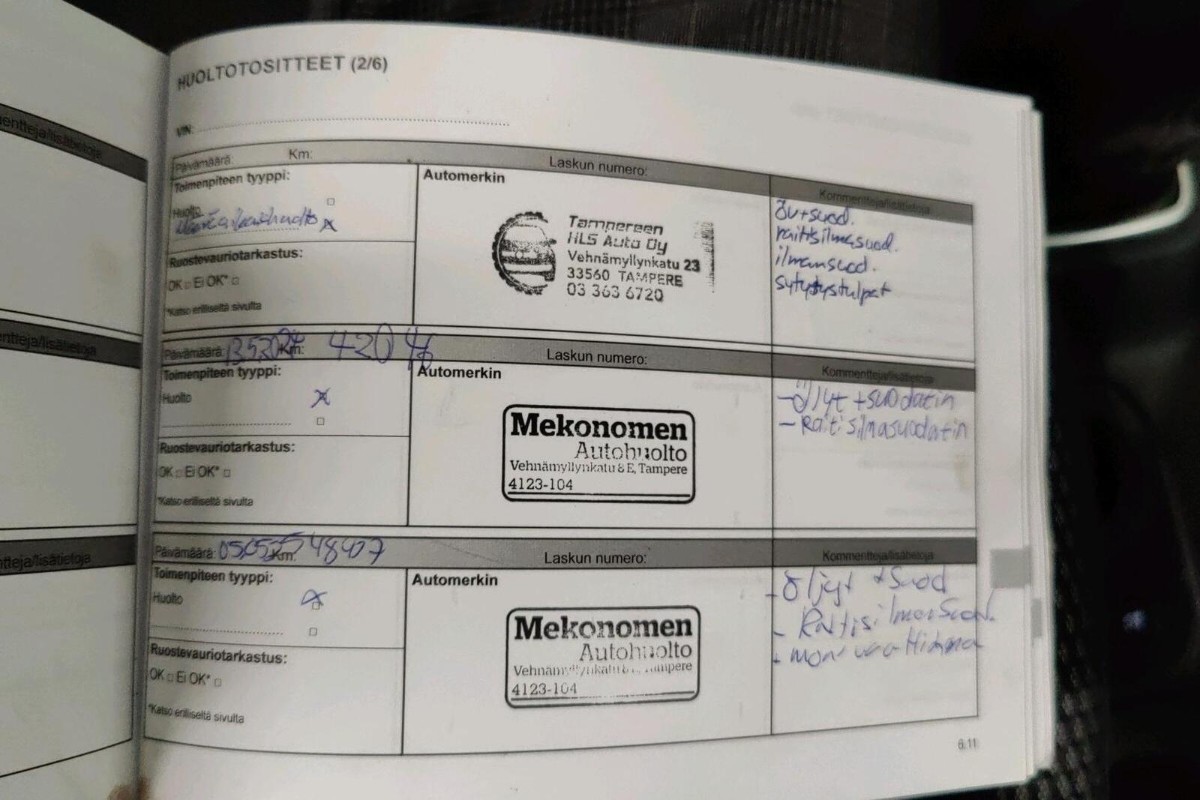 HUOLTOTOSITTEET (2/6)
VIN:
Päivämäärä: Km: Laskun numero:
Toimenpiteen tyyppi:
Huolto
Ruostevauriotarkastus:
OK Ei OK*
*Katso erilliseltä sivulta
Automerkin
Tampereen
HLS Auto Oy
Vehnämyllynkatu 23
33560 TAMPERE
03 363 6720
Kommentteja/lisätietoja
raitisilmasuod.
ilmansuod.
sytytystulpat
Päivämäärä: Km: Laskun numero:
Toimenpiteen tyyppi:
Huolto x
Ruostevauriotarkastus:
OK Ei OK*
*Katso erilliseltä sivulta
Automerkin
Mekonomen
Autohuolto
Vehnämyllynkatu 8 E, Tampere
4123-104
Kommentteja/lisätietoja
- öljyt + suodatin
- Raitisilmasuodatin
Päivämäärä: Km: 48407 Laskun numero:
Toimenpiteen tyyppi:
Huolto x
Ruostevauriotarkastus:
OK Ei OK*
*Katso erilliseltä sivulta
Automerkin
Mekonomen
Autohuolto
Vehnämyllynkatu 8 E, Tampere
4123-104
Kommentteja/lisätietoja
- Öljyt + Suod
- Raitisilmasuod.
6.11
entteja/lisätietoja
entteja/lisätietoja
tteja/lisätietoja